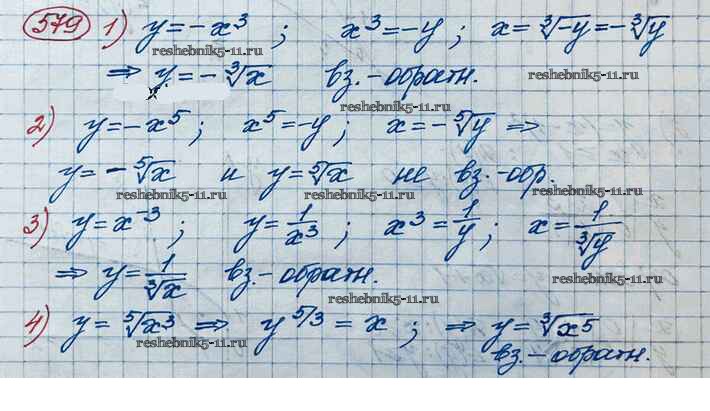 579 1) y = -x³ ; x³ = -y ; x = ∛-y = -∛y
reshebnik5-11.ru reshebnik5-11.ru
⇒ y = -∛x вз.-обратн.
reshebnik5-11.ru reshebnik5-11.ru
2) y = -x⁵ ; x⁵ = -y ; x = -⁵√y ⇒
y = -⁵√x и y = ⁵√x не вз.-обр.
reshebnik5-11.ru reshebnik5-11.ru reshebnik5-11.ru
3) y = x⁻³ ; y = 1/x³ ; x³ = 1/y ; x = 1/∛y
reshebnik5-11.ru
⇒ y = 1/∛x вз.-обратн.
reshebnik5-11.ru
4) y = ⁵√x³ ⇒ y^5/3 = x ; ⇒ y = ∛x⁵
reshebnik5-11.ru
вз.-обратн.